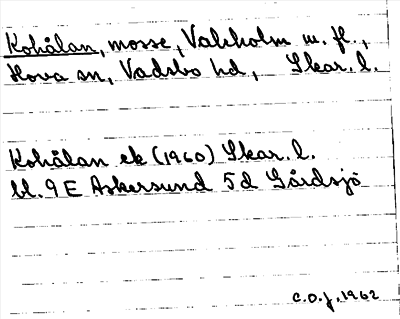 Kohålan, mosse, Valsholm m. fl.,
Hova sn, Vadsbo hd, Skar. l.
Kohålan ek (1960) Skar. l.
bl. 9E Askersund 5d Gårdsjö
C.O.J. 1962